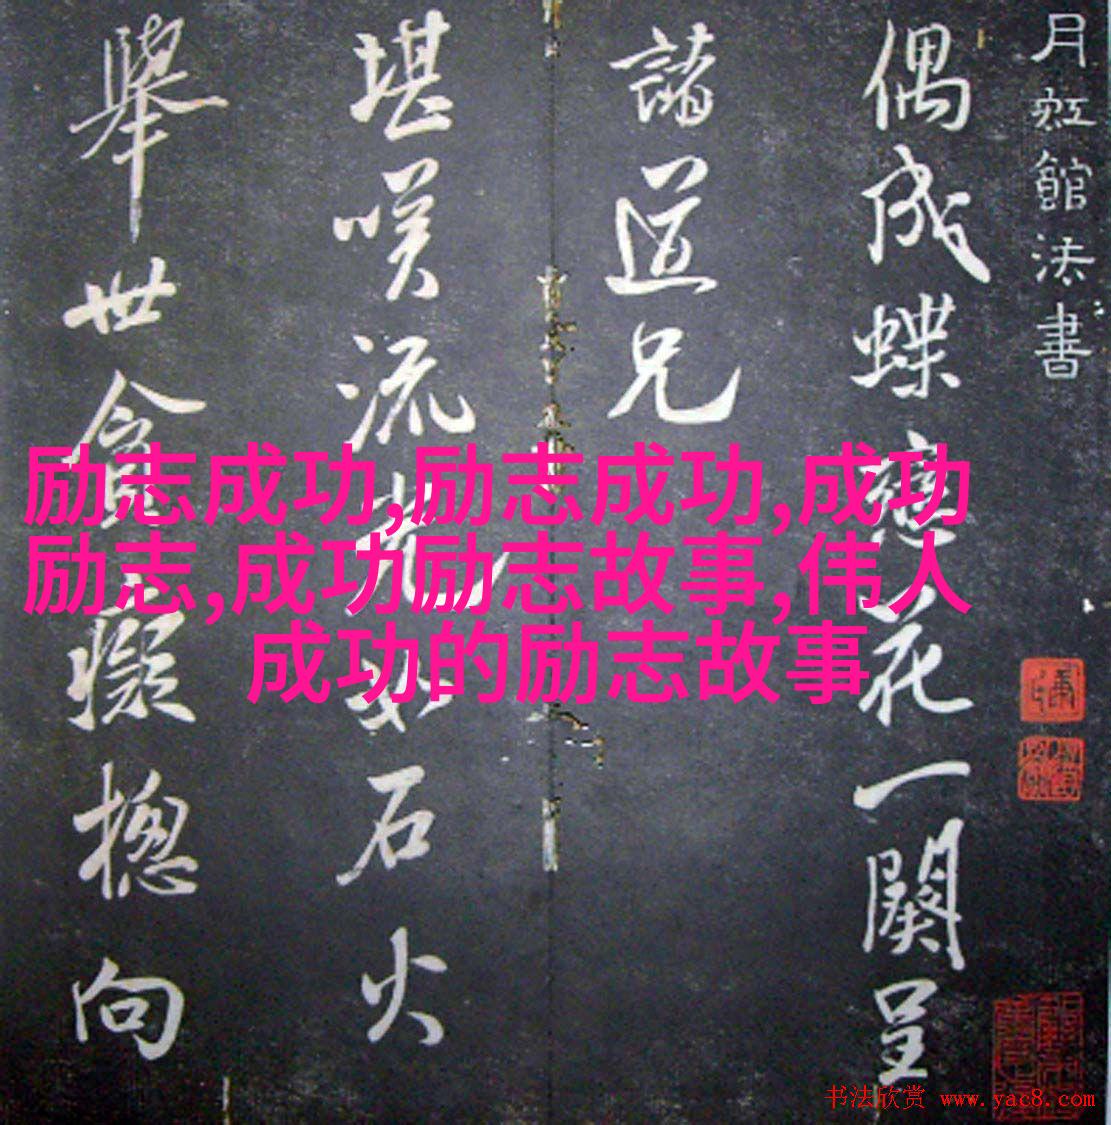 月虹館法書
偶成蝶戀花一闋呈
諸道兄
堪嘆流光如石火
舉世貪癡摠向
励志成功,励志成功,成功
励志,成功励志故事,伟人
成功的励志故事
书法欣赏 www.yac8.com